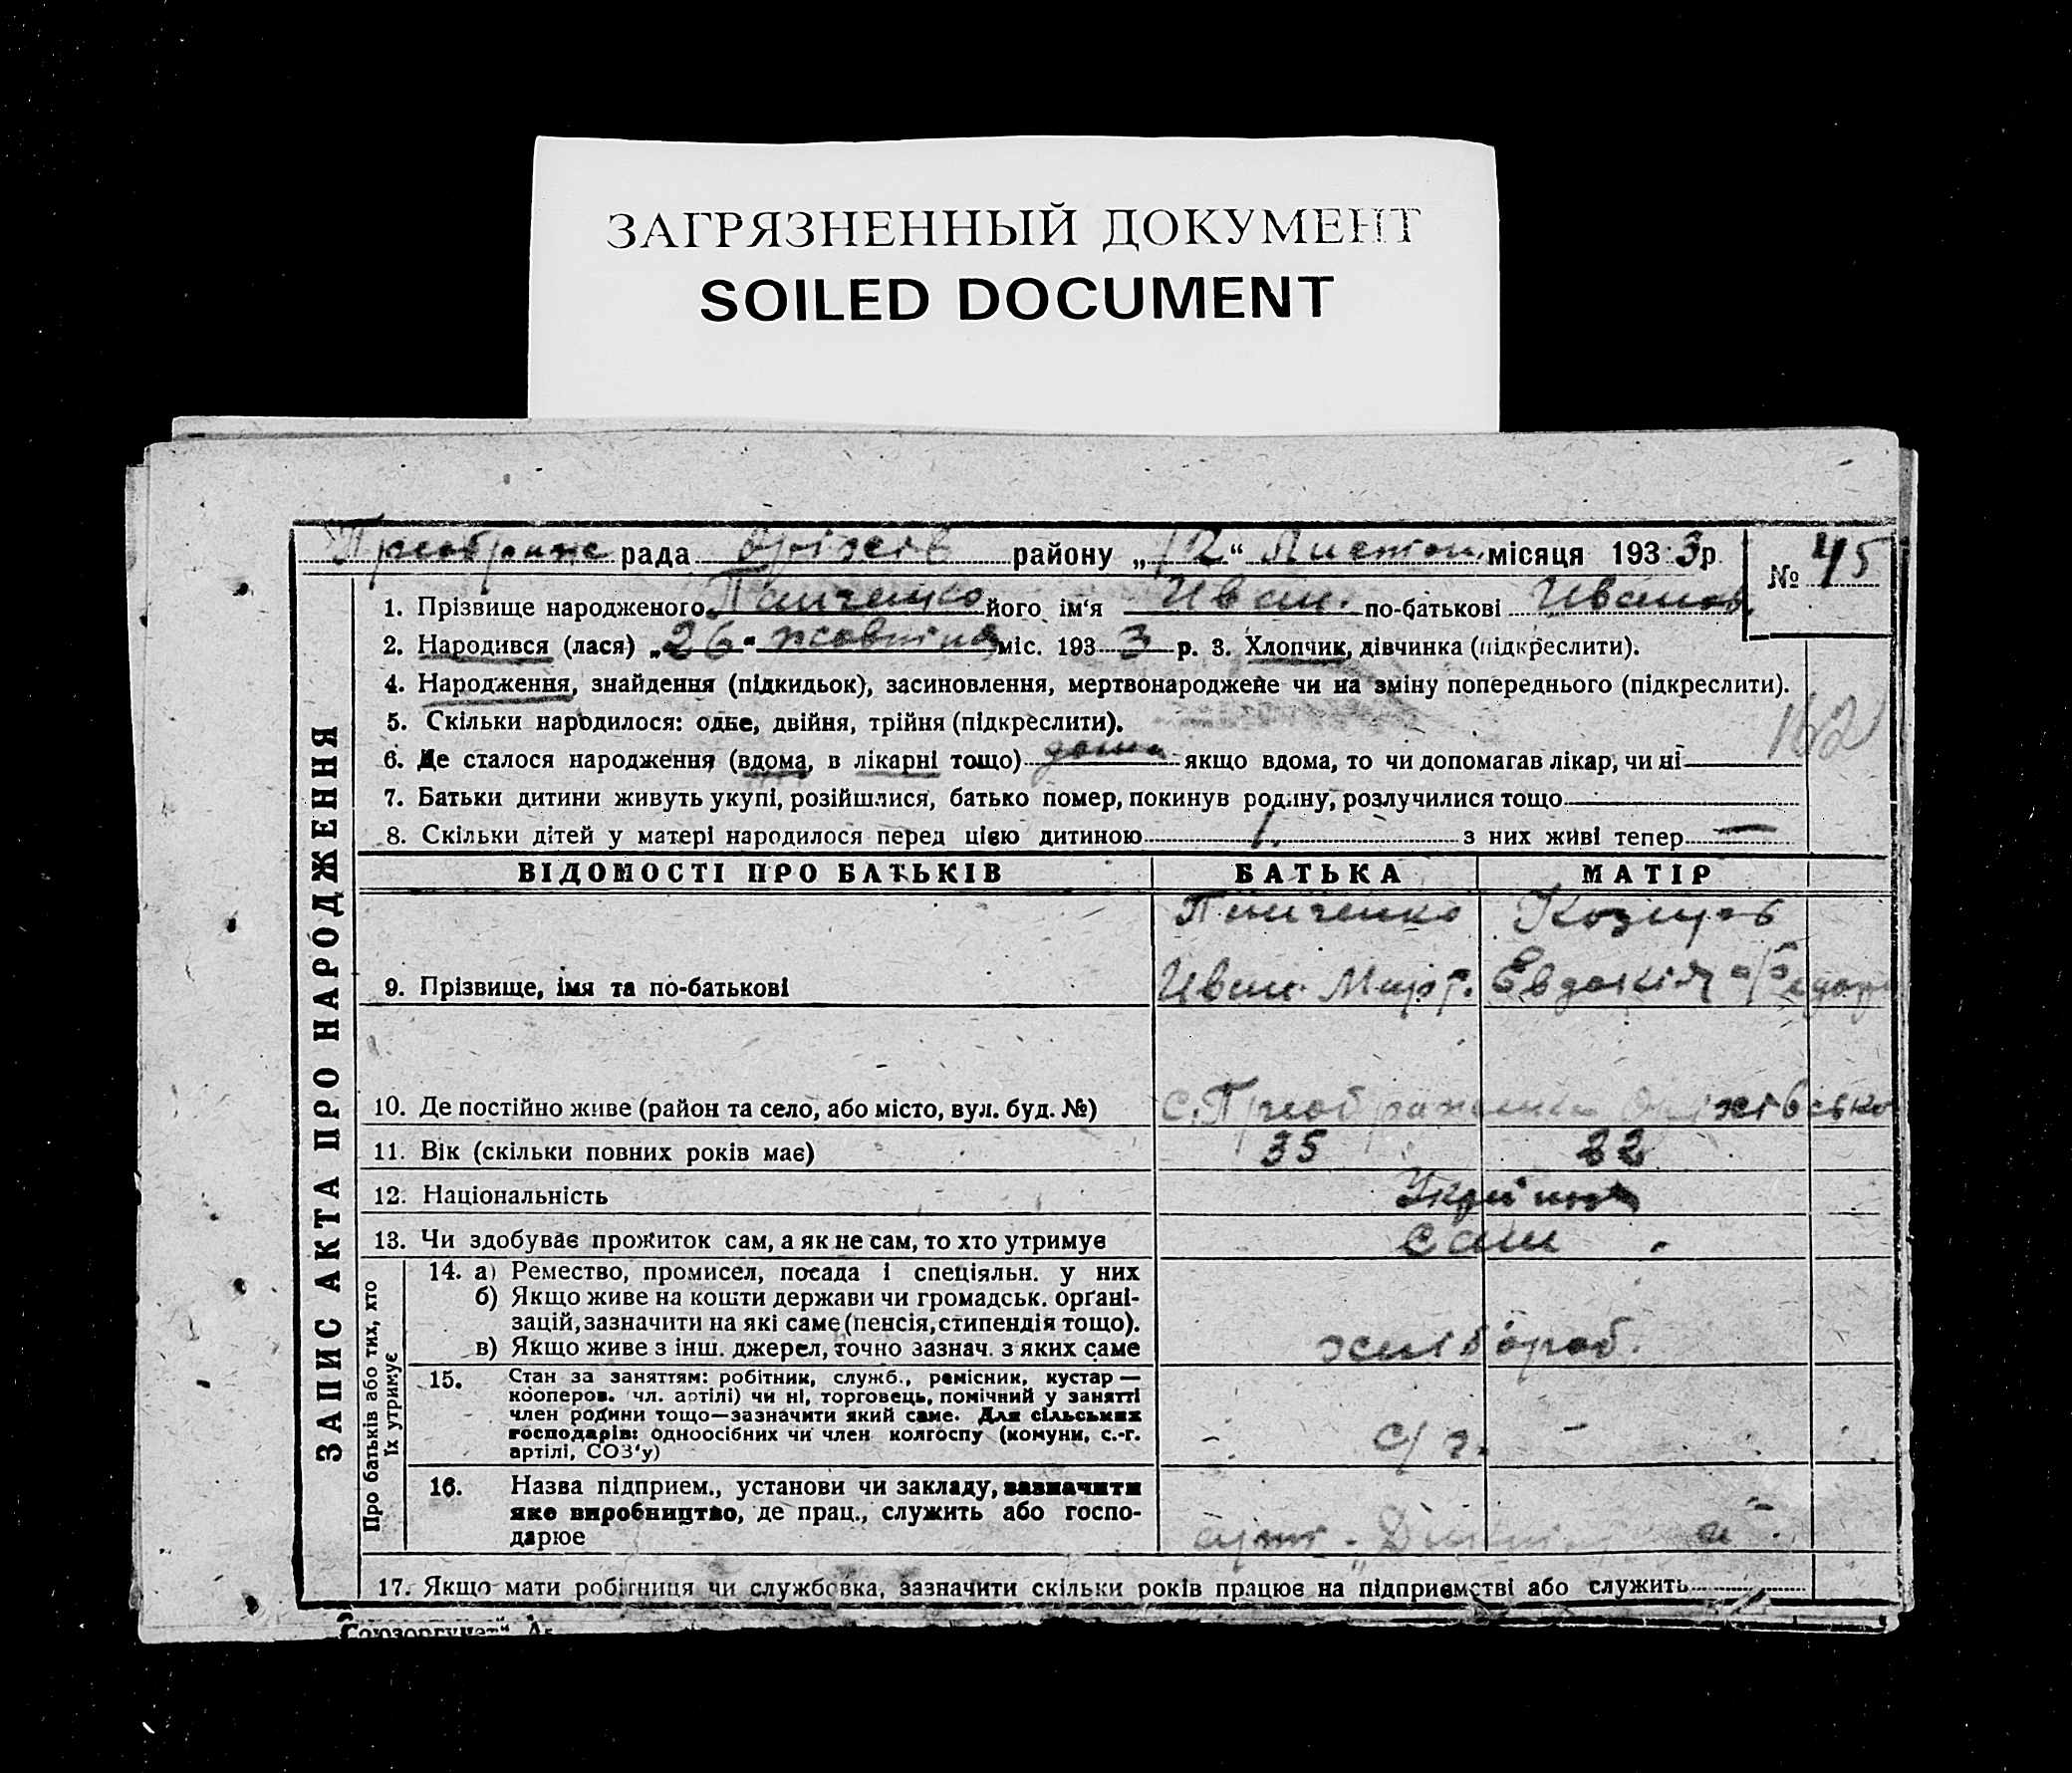 ЗАГРЯЗНЕННЫЙ ДОКУМЕНТ
SOILED DOCUMENT
Преображе рада Оріхів району „12“ Листоп. місяця 1933 р. № 45
ЗАПИС АКТА ПРО НАРОДЖЕННЯ
1. Прізвище народженого Панченко його ім‘я Иван. по-батькові Иванов.
2. Народився (лася) „26“ жовтня міс. 1933 р. 3. Хлопчик, дівчинка (підкреслити).
4. Народження, знайдення (підкидьок), засиновлення, мертвонароджене чи на зміну попереднього (підкреслити).
162
5. Скільки народилося: одне, двійня, трійня (підкреслити).
6. Де сталося народження (вдома, в лікарні тощо) дома якщо вдома, то чи допомагав лікар, чи ні
7. Батьки дитини живуть укупі, розійшлися, батько помер, покинув родину, розлучилися тощо
8. Скільки дітей у матері народилося перед цією дитиною 1. з них живі тепер —
ВІДОМОСТІ ПРО БАТЬКІВ БАТЬКА МАТІР
Панченко
9. Прізвище, імя та по-батькові Иван Евдокія
10. Де постійно живе (район та село, або місто, вул. буд. №) с. Преображенка Оріхівсько
11. Вік (скільки повних років має) 35 22
12. Національність
13. Чи здобуває прожиток сам, а як не сам, то хто утримує сам
Про батьків або тих, хто їх утримує
14. а) Ремество, промисел, посада і спеціяльн. у них
б) Якщо живе на кошти держави чи громадськ. орґані-
зацій, зазначити на які саме (пенсія, стипендія тощо).
в) Якщо живе з інш. джерел, точно зазнач. з яких саме хлібороб.
15. Стан за заняттям: робітник, служб., ремісник, кустар —
кооперов. чл. артілі) чи ні, торговець, помічний у занятті
член родини тощо—зазначити який саме. Для сільських
господарів: одноосібних чи член колгоспу (комуни, с.-г.
артілі, СОЗ‘у) с/г.
16. Назва підприєм., установи чи закладу, зазначити
яке виробництво, де прац., служить або госпо-
дарює
17. Якщо мати робітниця чи службовка, зазначити скільки років працює на підприємстві або служить